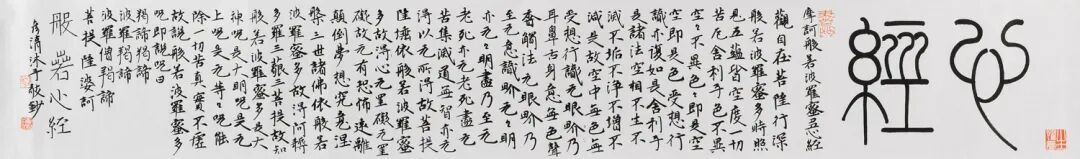 心
經
摩訶般若波羅蜜多心經
觀自在菩薩行深
般若波羅蜜多時照
見五蘊皆空度一切
苦厄舍利子色不異
空々不異色々即是
空々即是色受想行
識亦復如是舍利子
是諸法空相不生不
滅不垢不淨不增不
減是故空中无色无
受想行識无眼
耳鼻舌身意无色聲
香味觸法无眼界乃
至无意識界无々明
亦无々明盡乃至无
老死亦无老死盡无
苦集滅道无智亦无
得以无所得故菩提
薩埵依般若波羅蜜
多故得心无罣礙无罣
礙故无有恐怖遠離
顛倒夢想究竟涅
槃三世諸佛依般若
波羅蜜多故得阿耨
多羅三藐三菩提故知
般若波羅蜜多是大
神呪是大明呪是无
上呪是无等々呪能
除一切苦真實不虛
故說般若波羅蜜多
呪即說呪曰
羯諦羯諦
波羅羯諦
波羅僧羯諦
菩提薩婆訶
般若心經
沐手敬鈔